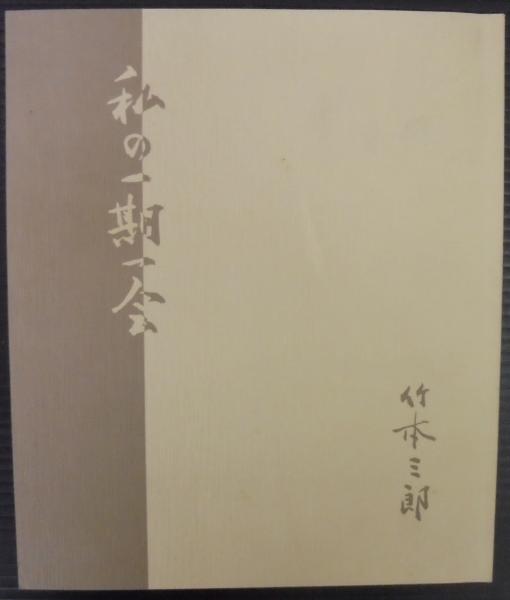 私の一期一会
竹本三郎